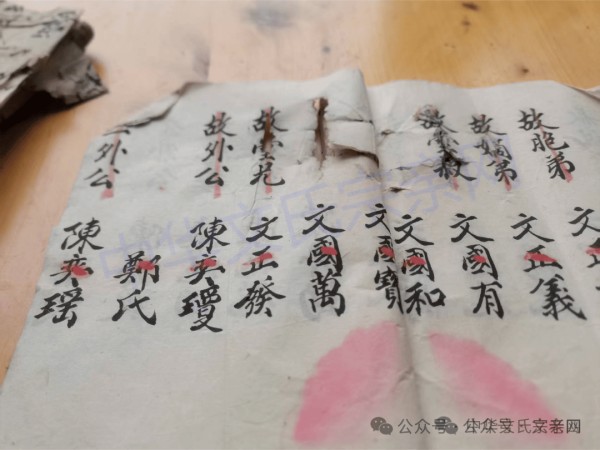 故胞弟 文正儀
故嫡弟 文國有
故堂叔 文國和
文國寶
文國萬
故堂兄 文正發
故外公 陳奕瓊
鄭氏
外公 陳奕瑤
中华文氏宗亲网
公众号 · 中华文氏宗亲网